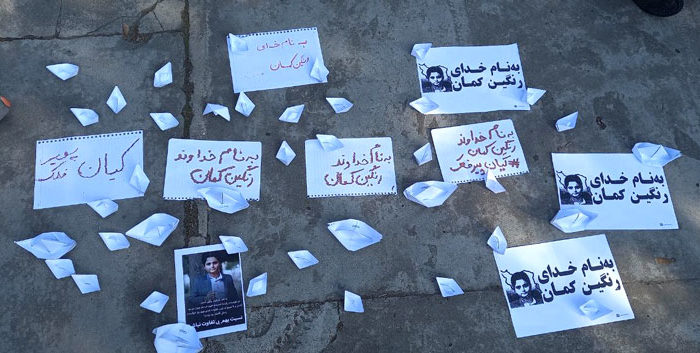 به نام خدای
رنگین کمان
به نام خدای
رنگین کمان
کیان پیرفلک
به نام خداوند
رنگین کمان
به نام خداوند
رنگین کمان
به نام خداوند
رنگین کمان
#کیان پیرفلک
به نام خدای
رنگین کمان
به نام خدای
رنگین کمان
نسبت بهم بی تفاوت نباشیم